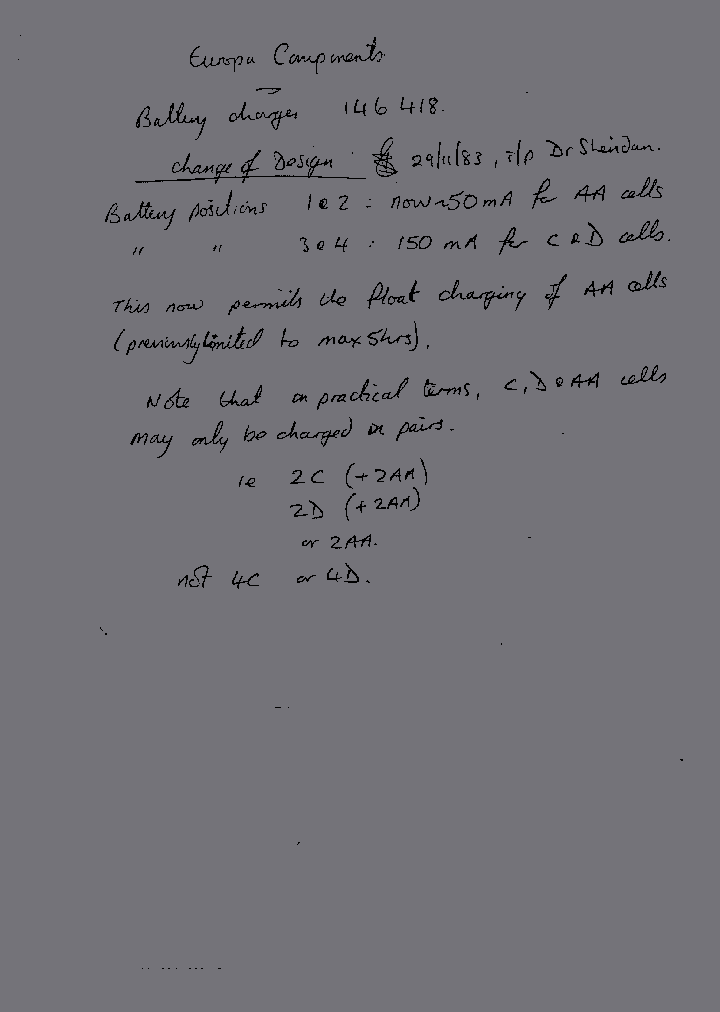 Europa Components
Battery charger 146 418.
change of Design 29/11/83, T/P Dr Sheridan.
Battery positions 1 & 2 : now ~50 mA for AA cells
" " 3 & 4 : 150 mA for C & D cells.
This now permits the float charging of AA cells
(previously limited to max 5hrs).
Note that in practical terms, C, D & AA cells
may only be charged in pairs.
ie 2C (+2AA)
2D (+2AA)
or 2AA.
not 4C or 4D.